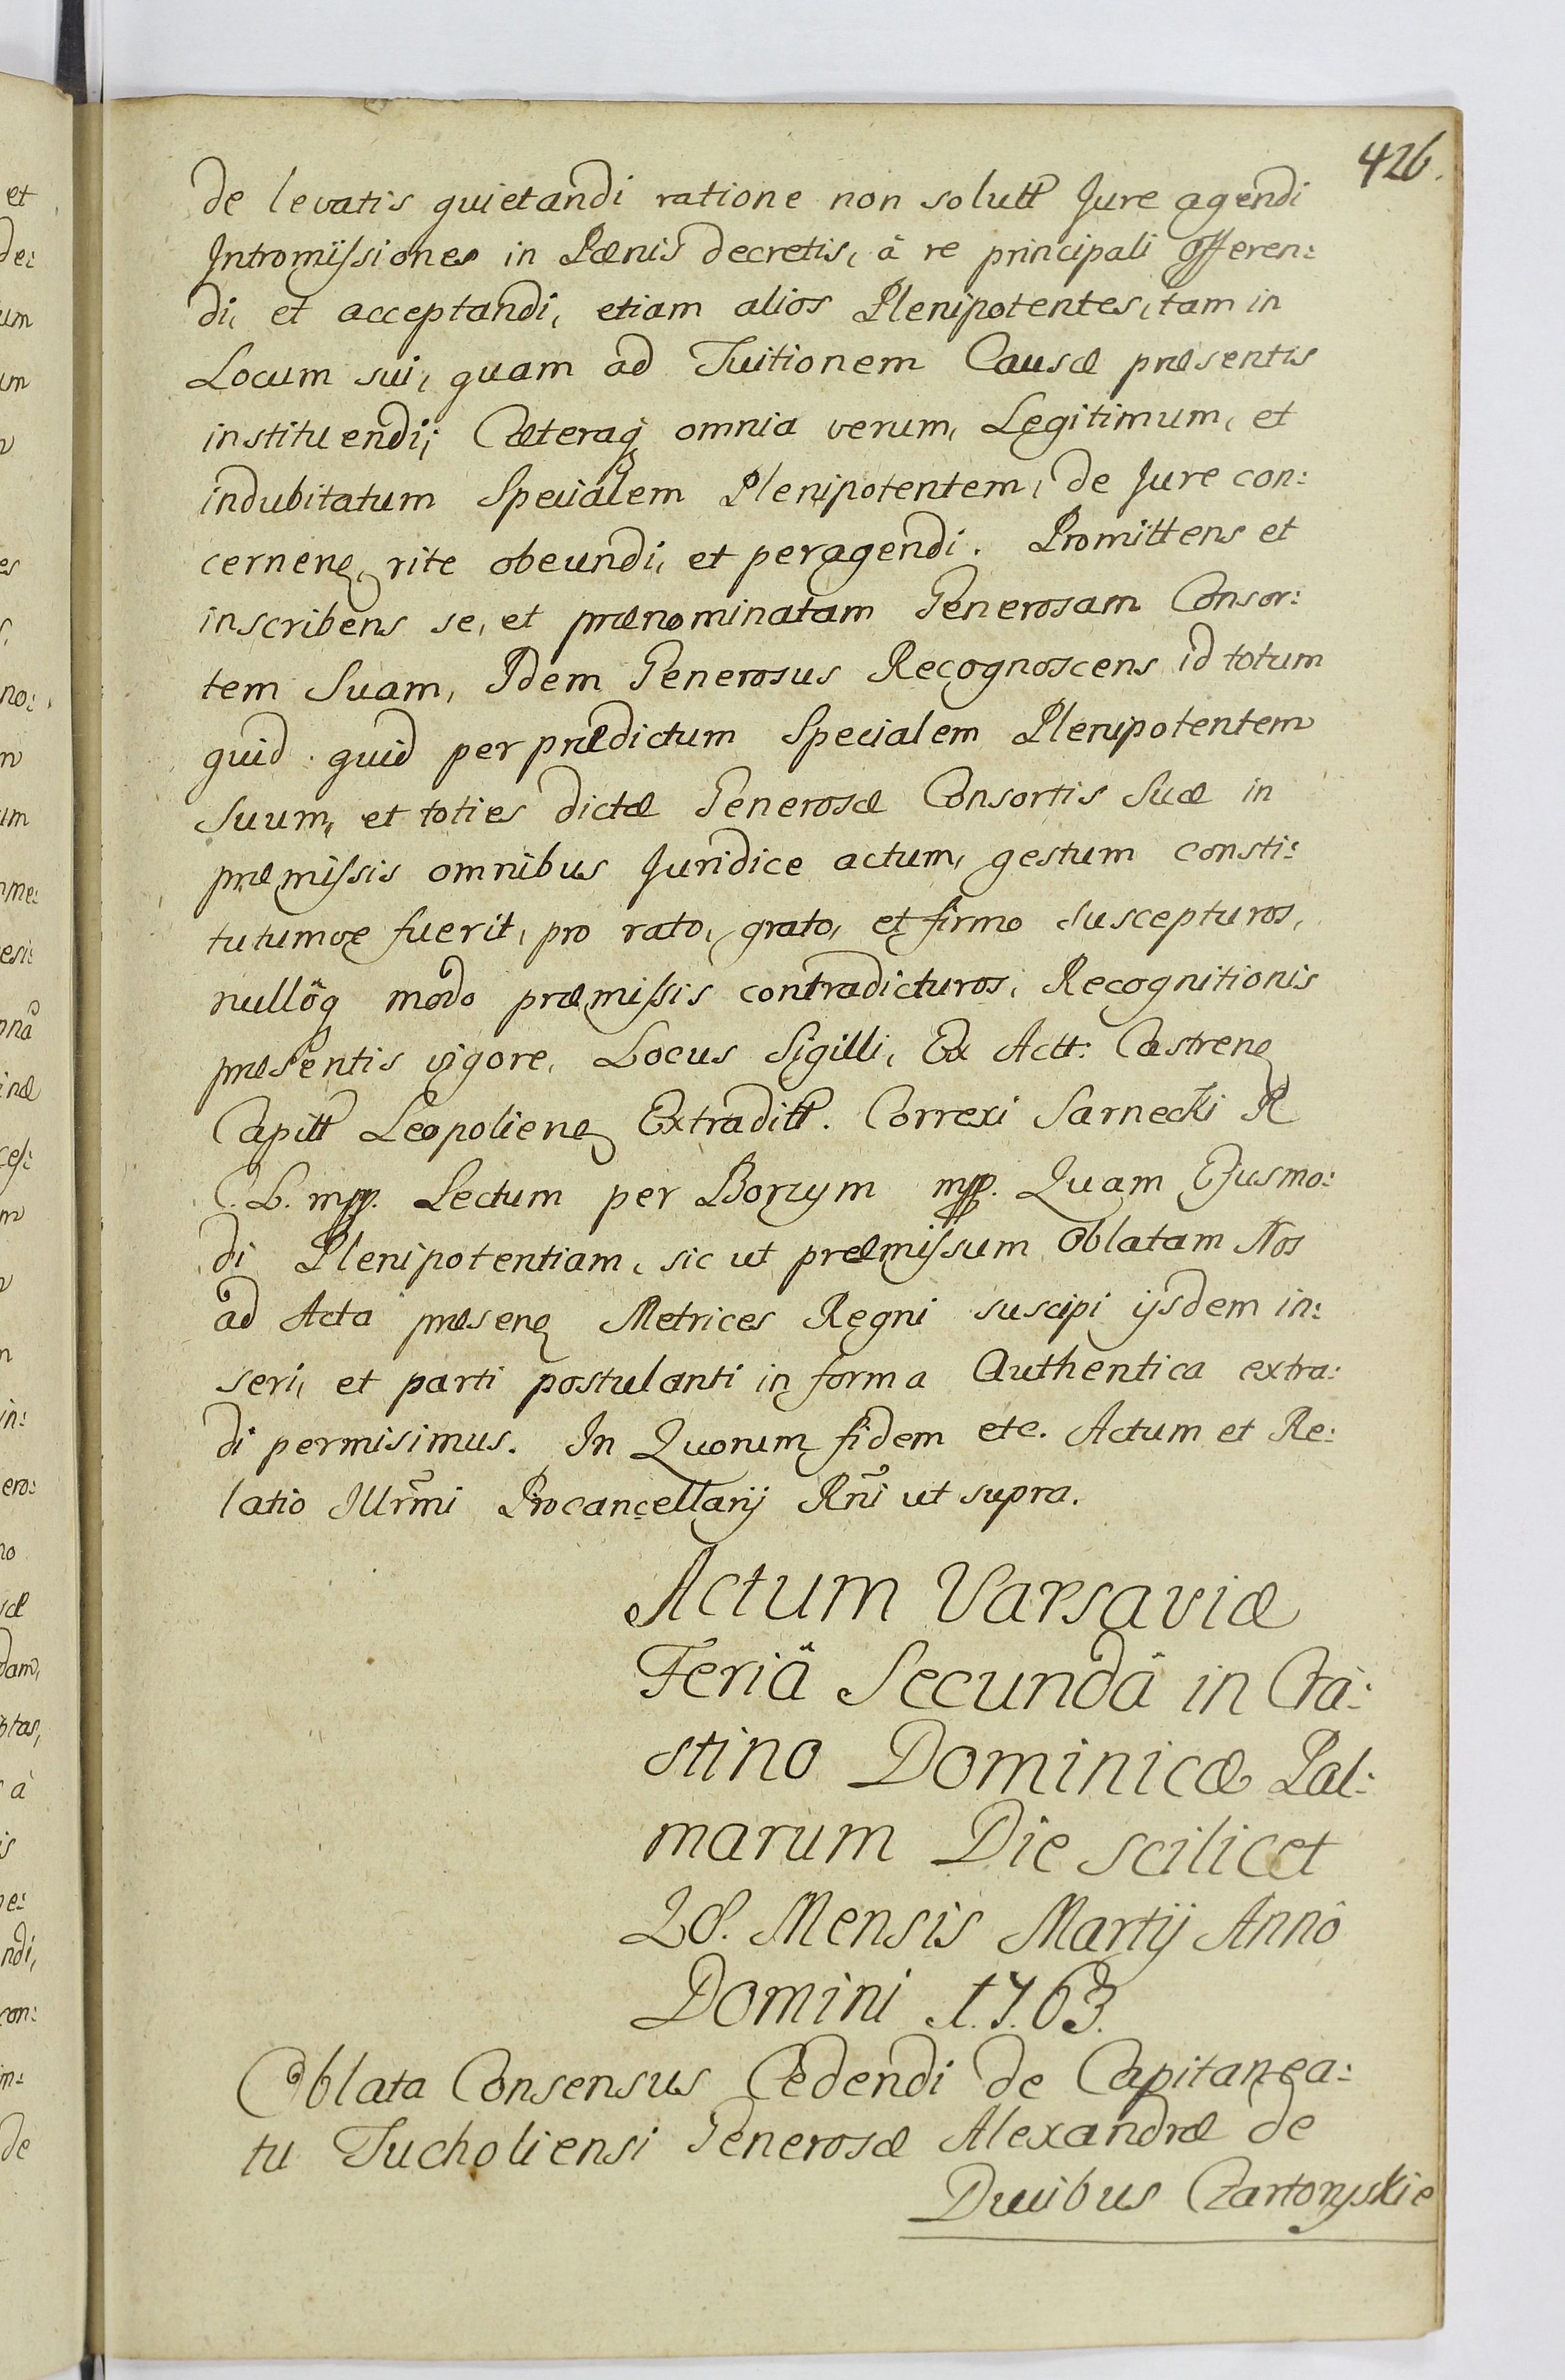 426.
de levatis quietandi ratione non solutt Jure agendi
Intromissiones in Pœnis decretis, à re principali Offeren:
di, et acceptandi, etiam alios Plenipotentes, tam in
Locum sui, quam ad Tuitionem Causæ præsentis
instituendi; Cæteraq omnia verum, Legitimum, et
indubitatum Specialem Plenipotentem, de Jure con:
cernenę, rite obeundi, et peragendi. Promittens et
inscribens se, et prænominatam Generosam Consor:
tem Suam, Idem Generosus Recognoscens id totum
quid quid per prædictum Specialem Plenipotentem
Suum, et toties dictæ Generosæ Consortis Suæ in
præmissis omnibus Juridice actum, gestum consti:
tutumve fuerit, pro rato, grato, et firmo suscepturos,
nullôq modo præmissis contradicturos, Recognitionis
præsentis vigore. Locus Sigilli, Ex Actt: Castrenę
Capitt Leopolienę Extraditt. Correxi Sarnecki R
C. L. mpp. Lectum per Borzym mpp. Quam Ejusmo:
di Plenipotentiam, sic ut præmissum Oblatam Nos
ad Acta præsenę Metrices Regni suscipi ijsdem in:
seri, et parti postulanti in forma Authentica extra:
di permisimus. In Quorum fidem etc. Actum et Re:
latio Illrm̃i Procancellarij Rñi ut supra.
Actum Varsaviæ
Feriâ Secundâ in Cra:
stino Dominicæ Pal:
marum Die scilicet
28. Mensis Martij Annô
Domini 1763.
Oblata Consensus Cedendi de Capitanea:
tu Tucholiensi Generosæ Alexandræ de
Ducibus Czartoryskie